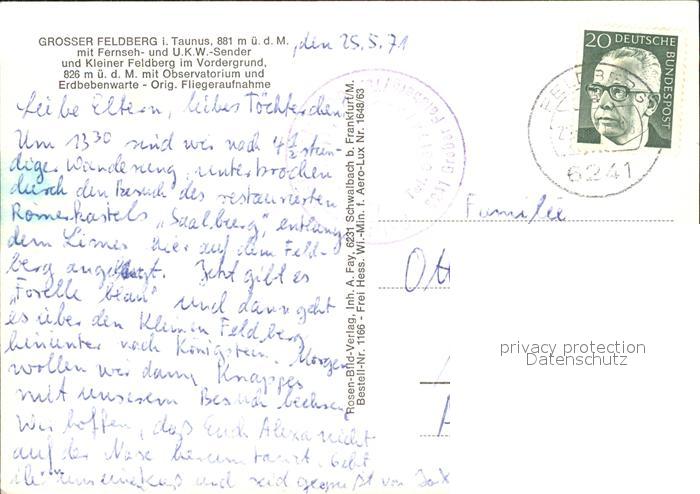 GROSSER FELDBERG i. Taunus, 881 m ü. d. M.
mit Fernseh- und U.K.W.-Sender
und Kleiner Feldberg im Vordergrund,
826 m ü. d. M. mit Observatorium und
Erdbebenwarte - Orig. Fliegeraufnahme
, den 25.5.71
Liebe Eltern, liebes Töchterchen!
Um 13³⁰ sind wir nach 4½stün-
diger Wanderung, unterbrochen
durch den Besuch des restaurierten
Römerkastels "Saalburg", entlang
dem Limes hier auf dem Feld-
berg angelangt. Jetzt gibt es
"Forelle blau" und dann geht
es über den Kleinen Feldberg
hinunter nach Königstein. Morgen
wollen wir dann Knapps
mit unserem Besuch
Wir hoffen, daß Euch Alexa nicht
auf der Nase herumtanzt. Gebt
ihr und seid gegrüßt von
Rosen-Bild-Verlag, Inh. A. Fay, 6231 Schwalbach b. Frankfurt/M.
Bestell-Nr. 1166 - Frei Hess. Wi.-Min. f. Aero-Lux Nr. 1648/63
20 DEUTSCHE
BUNDESPOST
FELDBERG
6241
Familie
Ott
privacy protection
Datenschutz